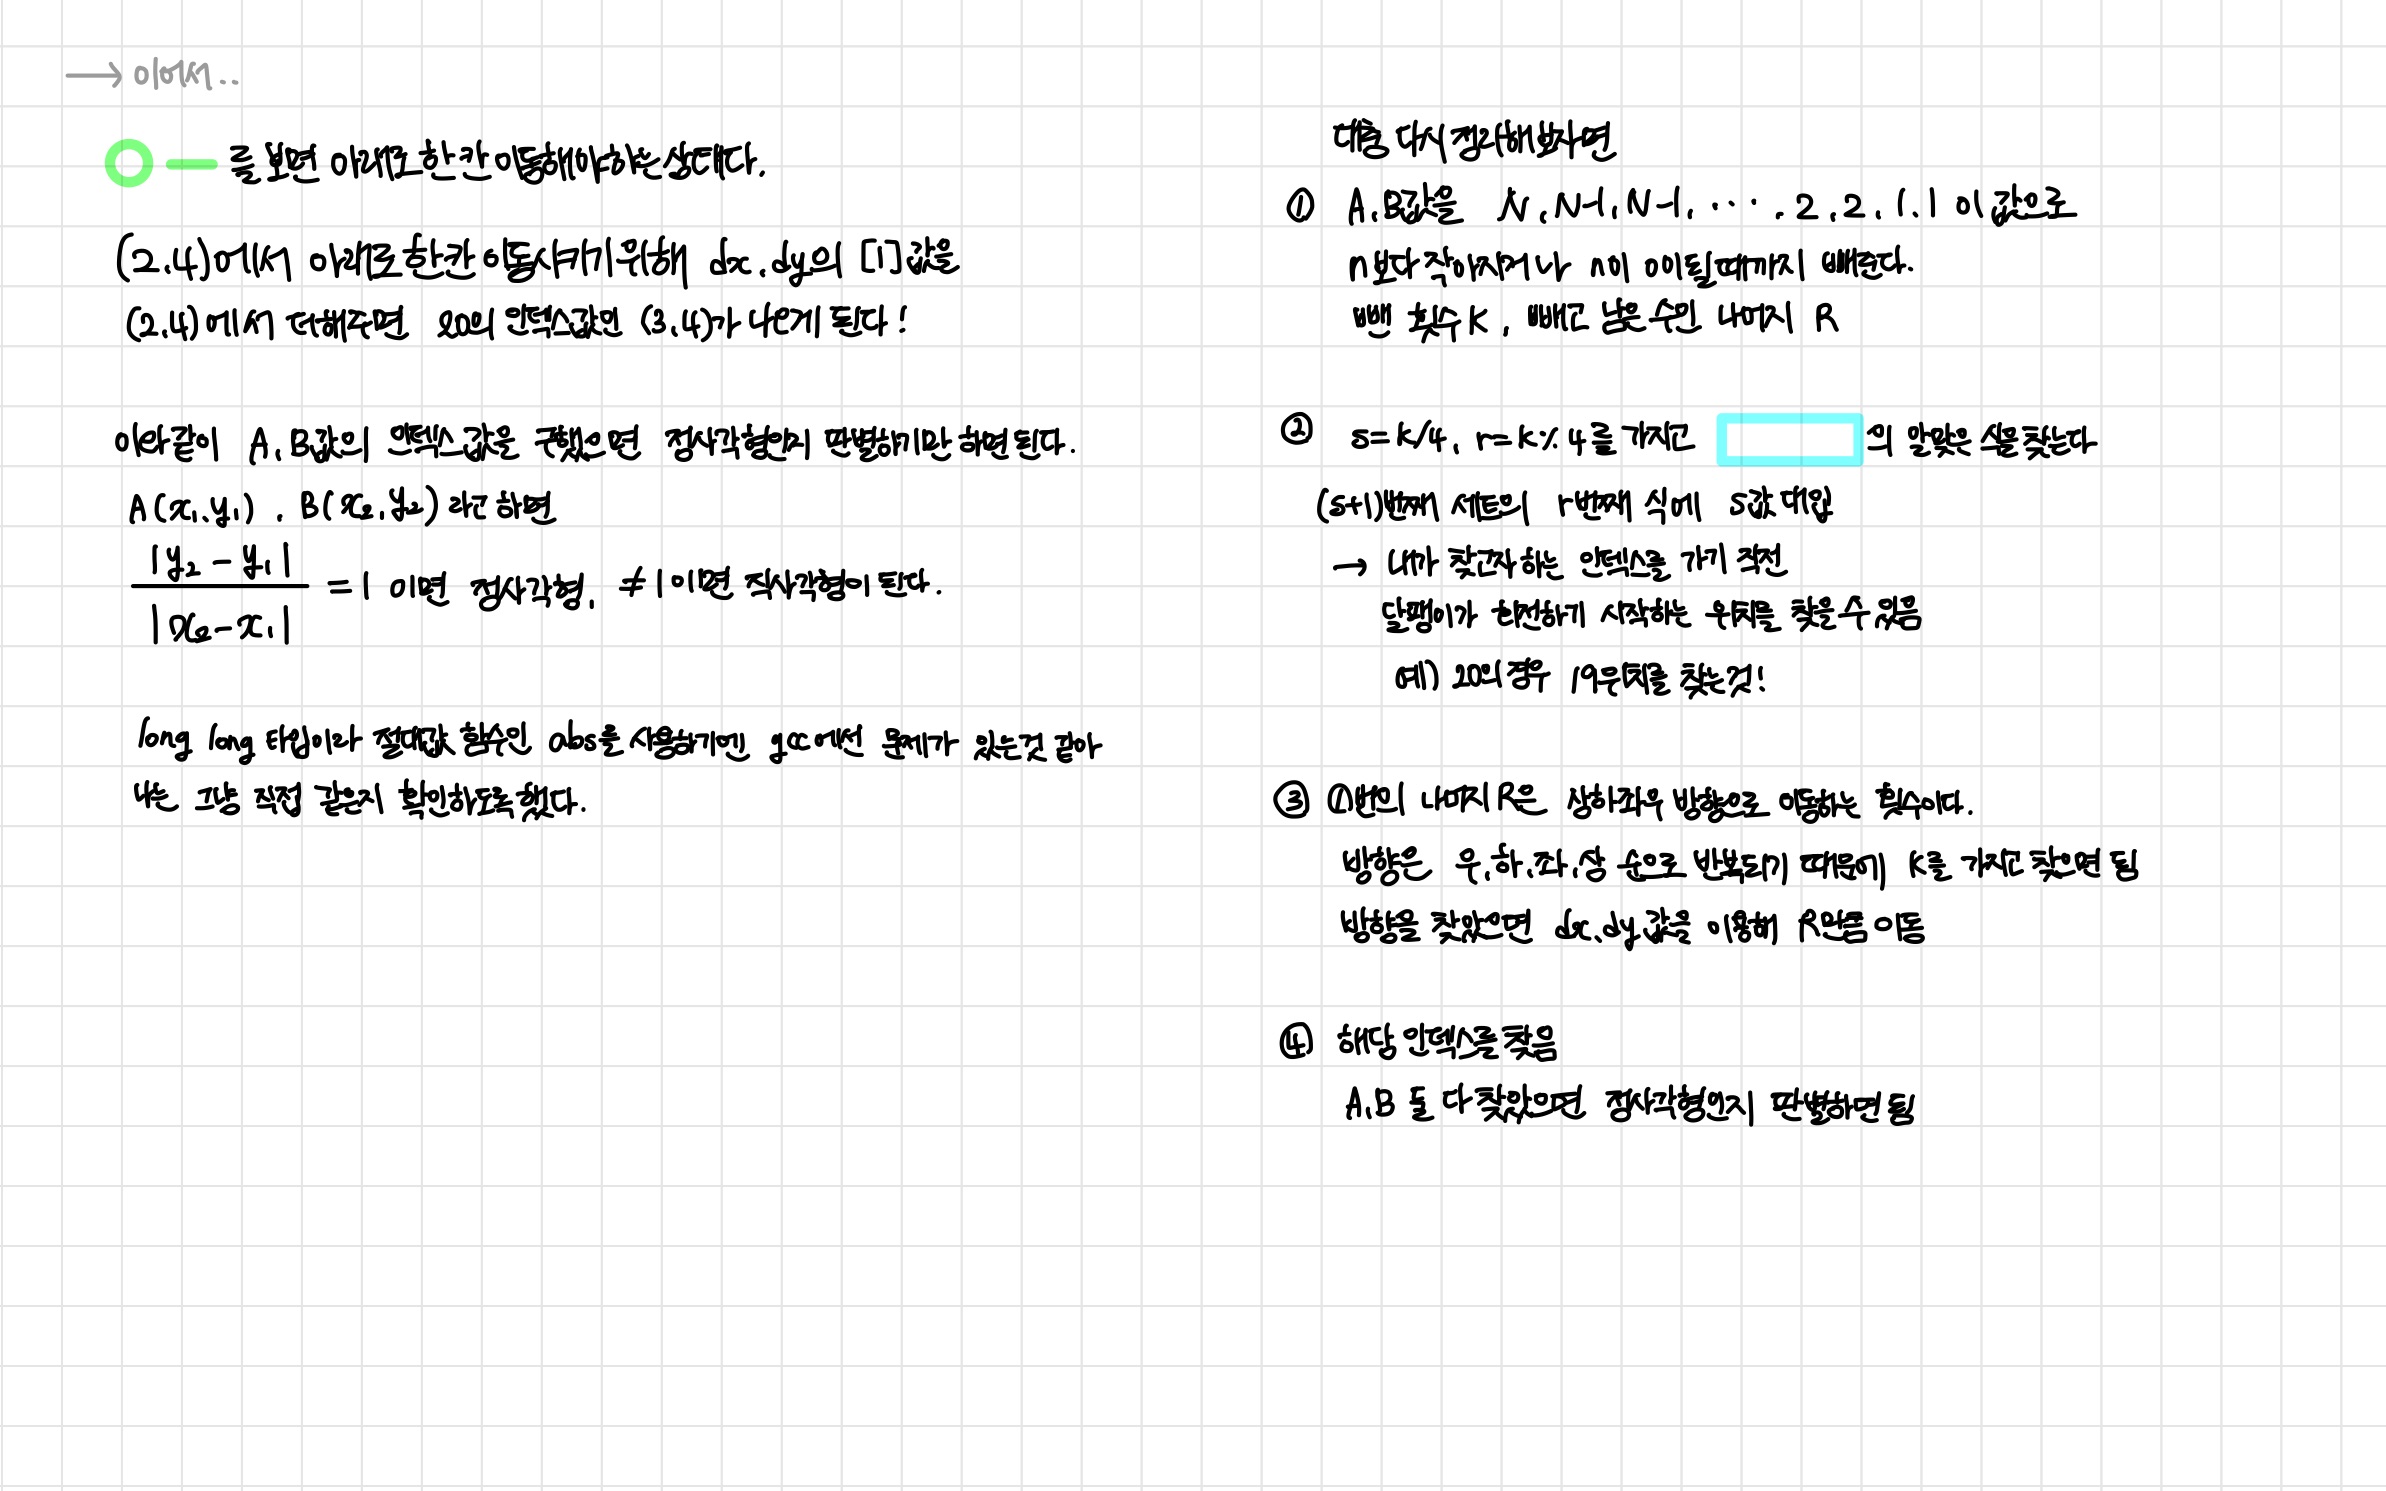 → 이어서..
를 보면 아래로 한 칸 이동해야하는 상태다.
(2.4)에서 아래로 한칸 이동시키기 위해 dx.dy의 [1]값을
(2.4)에서 더해주면 20의 인덱스값인 (3.4)가 나오게 된다!
이와 같이 A.B값의 인덱스값을 구했으면 정사각형인지 판별하기만 하면 된다.
A(x₁.y₁) . B(x₂.y₂) 라고 하면
|y₂ - y₁|
/ |x₂ - x₁| = 1 이면 정사각형, ≠ 1 이면 직사각형이 된다.
long long 타입이라 절대값 함수인 abs를 사용하기엔 gcc에선 문제가 있는것 같아
나는 그냥 직접 같은지 확인하도록 했다.
대충 다시 정리해보자면
① A.B값을 N.N-1.N-1. ··· .2.2.1.1 이 값으로
n보다 작아지거나 n이 0이 될때까지 빼준다.
뺀 횟수 K, 빼고 남은 수인 나머지 R
② s=k/4, r=k%4를 가지고 의 알맞은 식을 찾는다
(s+1)번째 세트의 r번째 식에 s값 대입
→ 내가 찾고자 하는 인덱스를 가기 직전
달팽이가 회전하기 시작하는 위치를 찾을 수 있음
예) 20의 경우 19위치를 찾는것!
③ ①번의 나머지 R은 상하좌우 방향으로 이동하는 횟수이다.
방향은 우.하.좌.상 순으로 반복되기 때문에 K를 가지고 찾으면 됨
방향을 찾았으면 dx.dy 값을 이용해 R만큼 이동
④ 해당 인덱스를 찾음
A.B 둘 다 찾았으면 정사각형인지 판별하면 됨